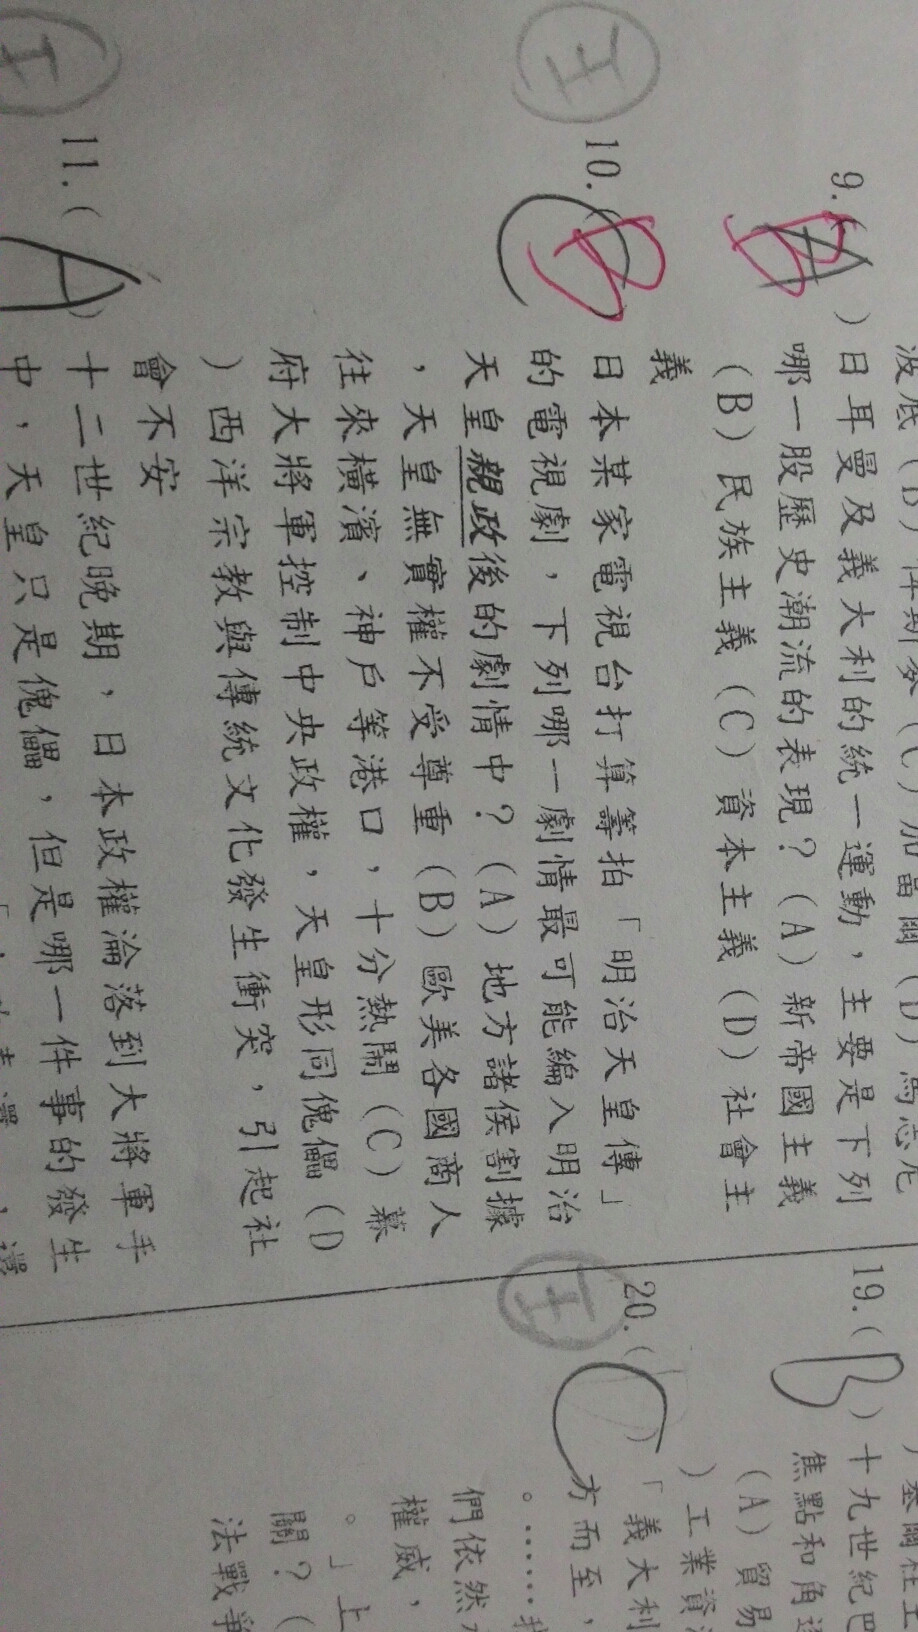 波底(B)俾斯麥(C)加富爾(D)馬志尼
9.(A B)日耳曼及義大利的統一運動，主要是下列
哪一股歷史潮流的表現？(A)新帝國主義
(B)民族主義(C)資本主義(D)社會主
義
王
10.(C B
日本某家電視台打算籌拍「明治天皇傳」
的電視劇，下列哪一劇情最可能編入明治
天皇親政後的劇情中？(A)地方諸侯割據
，天皇無實權不受尊重(B)歐美各國商人
往來橫濱、神戶等港口，十分熱鬧(C)幕
府大將軍控制中央政權，天皇形同傀儡(D
)西洋宗教與傳統文化發生衝突，引起社
會不安
王
11.(A)十二世紀晚期，日本政權淪落到大將軍手
中，天皇只是傀儡，但是哪一件事的發生
19.(B)十九世紀巴
焦點和角逐
(A)貿易
)工業資
王
20.(C)「義大利
方而至，
。……我
們依然
權威，
。」上
關？(
法戰爭